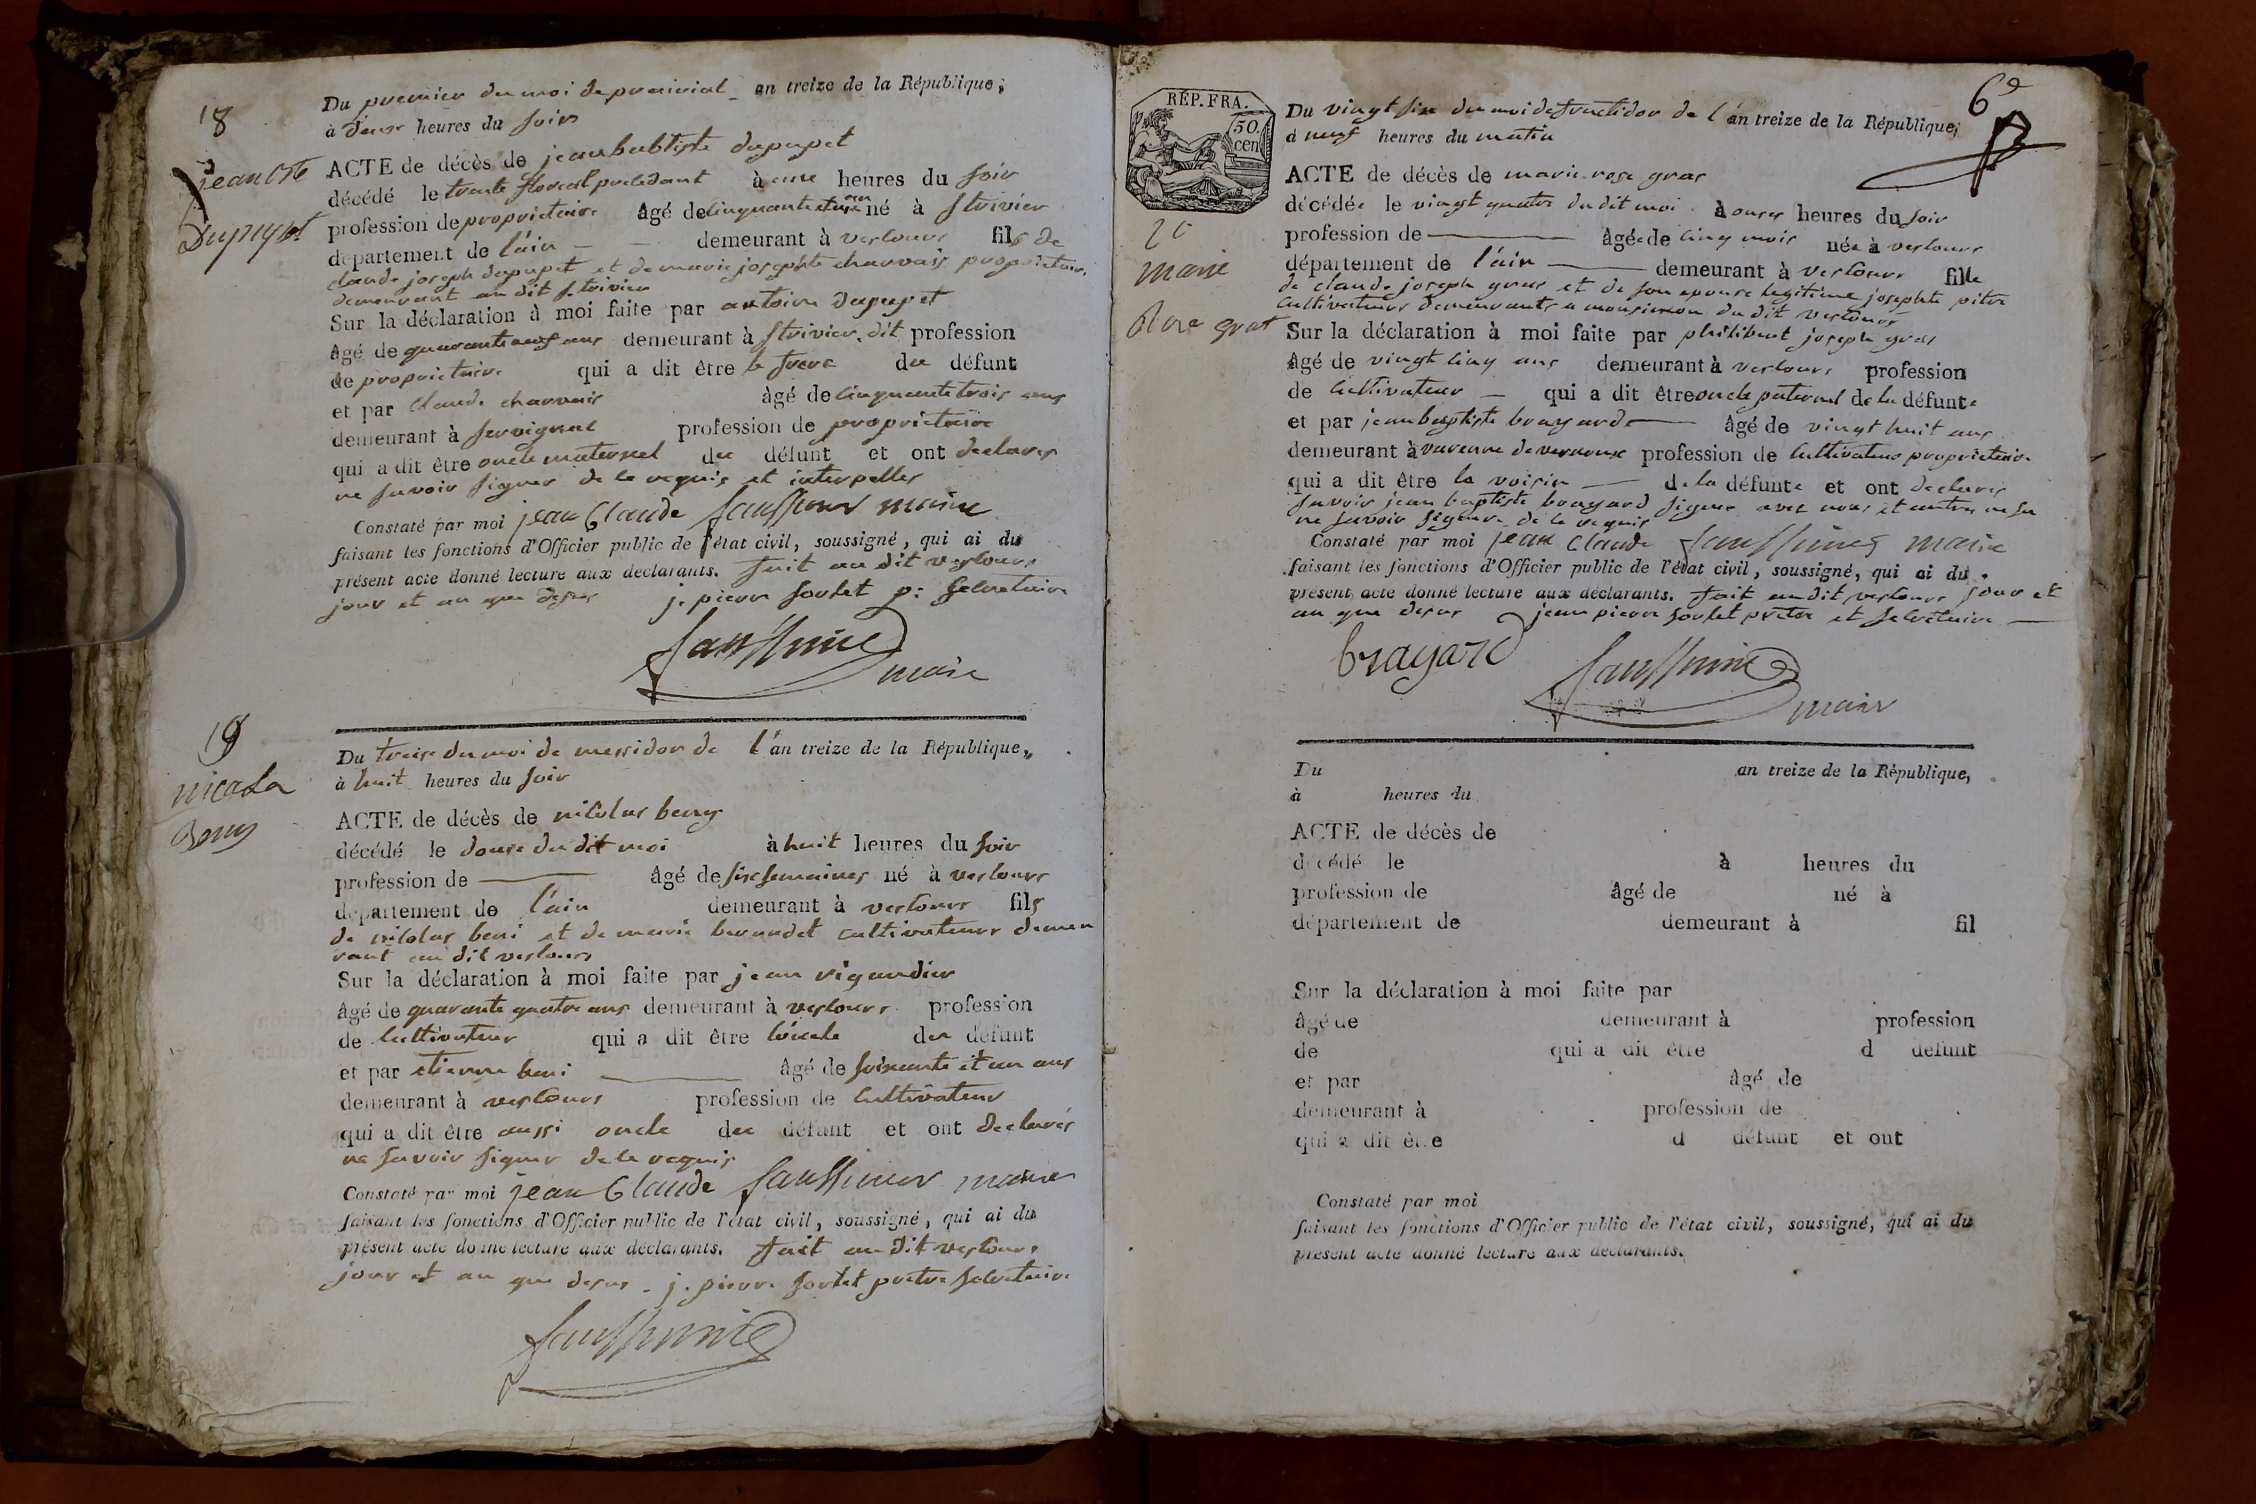 18
jean Bte
Dupupet
Du premier du moi de prairial an treize de la République;
à deux heures du soir
ACTE de décès de jean babtiste dupupet
décédé le trente floreal precedant à une heures du soir
profession de proprietaire âgé de cinquante et un ans né à st trivier
département de l'ain demeurant à verlours fils de
claude joseph dupupet et de marie josephte charvais proprietair.
demeurant au dit st trivier
Sur la déclaration à moi faite par antoine dupupet
âgé de quarante neuf ans demeurant à st trivier dit profession
de proprietaire qui a dit être le frere du défunt
et par Claude charvais âgé de cinquante trois ans
demeurant à servignat profession de proprietaire
qui a dit être oncle maternel du défunt et ont declarés
ne savoir signer de le requis et interpelles
Constaté par moi jean Claude maire
faisant les fonctions d'Officier public de l'état civil, soussigné, qui ai du
présent acte donné lecture aux déclarants. fait au dit verlours
jour et an que desus j. pierre p. secretaire
maire
19
nicola
Beny
Du treise du moi de messidor de l'an treize de la République,
à huit heures du soir
ACTE de décès de nicolas beny
décédé le douse du dit moi à huit heures du soir
profession de âgé de six semaines né à verlours
département de l'ain demeurant à verlours fils
de nicolas beni et de marie cultivateurs demeu
rant au dit verlours
Sur la déclaration à moi faite par jean rigaudier
âgé de quarante quatre ans demeurant à verlours profession
de cultivateur qui a dit être l'oncle du défunt
et par etienne beni âgé de soixante et un ans
demeurant à verlours profession de cultivateur
qui a dit être aussi oncle du défunt et ont declarés
ne savoir signer de le requis
Constaté par moi jean Claude maire
faisant les fonctions d'Officier public de l'état civil, soussigné, qui ai du
présent acte donné lecture aux déclarants. fait au dit verlours
jour et an que desus. j. pierre pretre secretaire
RÉP. FRA.
50.
cen
6e
20
marie
Rose gras
Du vingt six du moi de fructidor de l'an treize de la République;
à neuf heures du matin
ACTE de décès de marie rose gras
décédée le vingt quatre du dit moi à onses heures du soir
profession de âgée de cinq mois née à verlours
département de l'ain demeurant à verlours fille
de claude joseph gras et de son epouse legitime josephte pitre
cultivateurs demeurants a du dit verlours
Sur la déclaration à moi faite par philibert joseph gras
âgé de vingt cinq ans demeurant à verlours profession
de cultivateur qui a dit être oncle paternel de la défunte
et par jean baptiste brayard âgé de vingt huit ans
demeurant à varenne profession de cultivateur proprietaire
qui a dit être le voisin de la défunte et ont declarés
savoir jean baptiste brayard signer avec nous et
ne savoir signer de le requis
Constaté par moi jean Claude maire
faisant les fonctions d'Officier public de l'état civil, soussigné, qui ai du
présent acte donné lecture aux déclarants. fait au dit verlours jour et
an que desus jean pierre pretre et secretaire
brayard
maire
Du an treize de la République,
à heures du
ACTE de décès de
décédé le à heures du
profession de âgé de né à
département de demeurant à fil
Sur la déclaration à moi faite par
âgé de demeurant à profession
de qui a dit être d défunt
et par âgé de
demeurant à profession de
qui a dit être d défunt et ont
Constaté par moi
faisant les fonctions d'Officier public de l'état civil, soussigné, qui ai du
présent acte donné lecture aux déclarants.